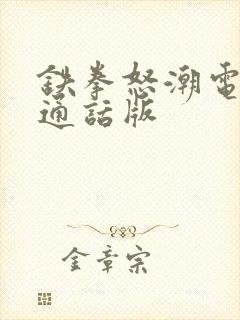 鉄拳怒潮電
通話版
金章宗